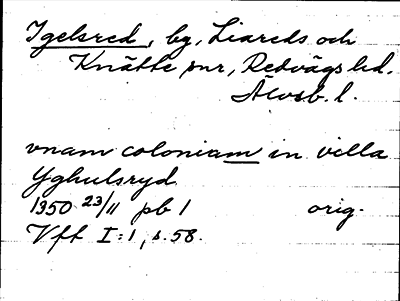 Igelsred, by, Liareds och
Knätte snr, Redvägs hd.
Älvsb. l.
vnam coloniam in villa
Yghulsryd
1350 23/11 pb 1 orig.
Vff I:1, s. 58.